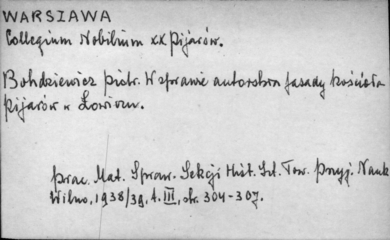 WARSIAWA
Collegium Nobilium XX Pijarów.
Bohdziewicz Piotr. W sprawie autorstwa fasady kościoła
Pijarów w Łowiczu.
Prac. Mat. Spraw. Sekcji Hist. Szt. Tow. Przyj. Nauk
Wilno, 1938/39, t. III, str. 304-307.